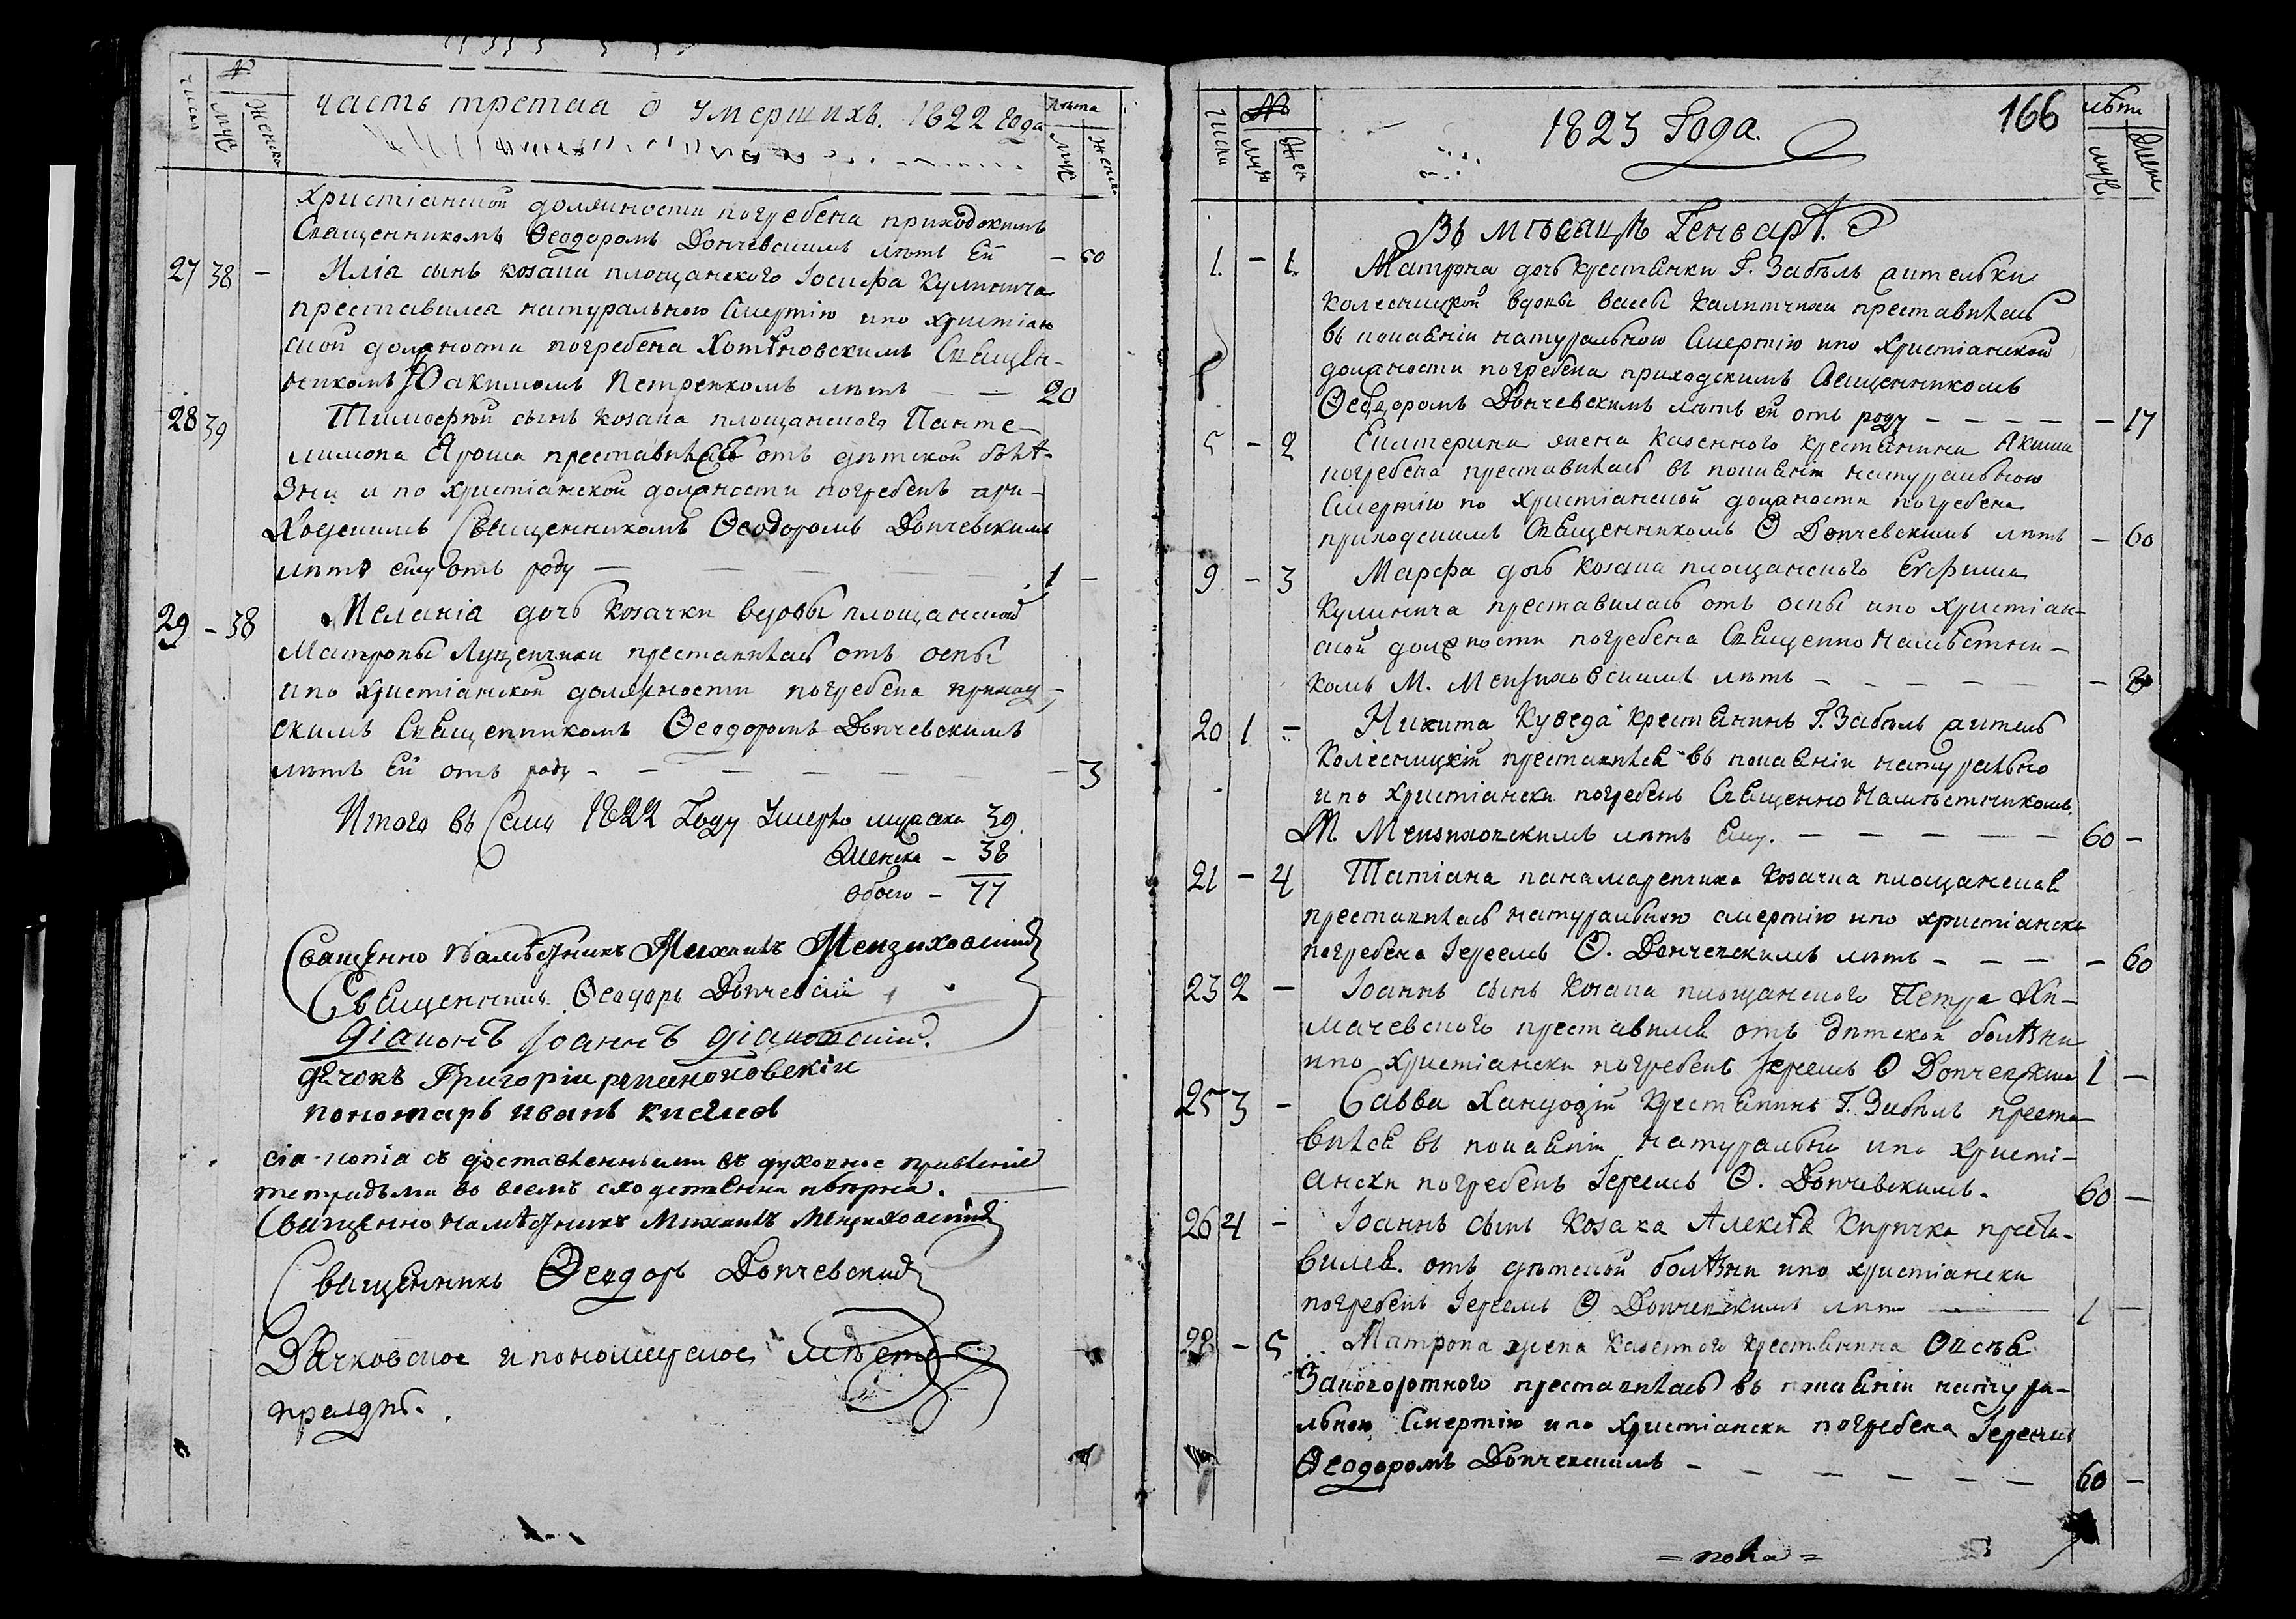 часть третая о умершихъ. 1822 года
числа № муж женска
лѣта муж женска
христіанской должности погребена приходскимъ
Священникомъ Ѳеодоромъ Дончевскимъ лѣтъ Ей – 60
27 38 – Иліа сынъ козака площанского Іосифа Кулинича
преставился натуральною Смертію ипо христіан
ской должности погребена Хотѣновскимъ Священ-
никомъ Юакимомъ Петренкомъ лѣтъ — — 20
28 39 Тимофѣй сынъ козака площанского Панте-
лимона Яроша преставился отъ дѣтской болѣ-
зни и по христіанской должности погребенъ при-
ходскимъ Священникомъ Ѳеодоромъ Дончевскимъ
лѣтъ ему отъ роду — — — — 1 –
29 – 38 Меланіа дочь козачки вдовы площанской
Матроны Луценчики преставилась отъ оспы
ипо христіанской должности погребена приход-
скимъ Священникомъ Ѳеодоромъ Дончевскимъ
лѣтъ Ей отъ роду - — — — — — — 3
Итого въ Семъ 1822 Году Умерло мужска 39.
Женска – 38
обоего – 77
Священно Намѣсникъ Михаилъ Мензиховский
Священникъ Ѳеодоръ Дончевскій
діаконъ Іоаннъ
дячокъ Григорій
пономарь иванъ киселев
сіа копіа съ доставленными въ духовное правленіе
тетрадьми во всемъ сходственна и вѣрна.
Священно Намѣсникъ Михаилъ Мензиховский
Священникъ Ѳеодоръ Дончевский
Дячковское и пономарское мѣсто
праздны.
числа № муж жен
1823 Года.
166
лѣта муж женс
Въ мѣсацѣ Генварѣ.
1. – 1. Матрона дочь крестянки Г. Забѣль жительки
Колесницкой вдовы васы Калитчихи преставилась
въ покаяніи натуральною Смертію ипо Христіанской
должности погребена приходскимъ Священникомъ
Ѳеодоромъ Дончевскимъ лѣтъ ей отъ роду — — — — – 17
5 – 2 Екатерина жена казенного крестянина Якима
погребена преставилась въ покаяніи натуральною
Смертію по христіанской должности погребена
приходскимъ Священникомъ Ѳ Дончевскимъ лѣтъ – 60
9 – 3 Марфа дочь козака площанского Евфима
Кулинича преставилась отъ оспы ипо христіан-
ской должности погребена Священно Намѣстни-
комъ М. Мензиховскимъ лѣтъ — — — — —
20 1 – Никита Куведа крестянинъ Г. Забѣлъ житель
Колесницкій преставился въ покаяніи натурально
ипо христіански погребенъ Священно Намѣстникомъ
М. Мензиховскимъ лѣтъ Ему. — — — — — 60 –
21 – 4 Татіана панамаренчиха козачка площанская
преставилась натуральною смертію ипо христіански
погребена Іереемъ Ѳ. Дончевскимъ лѣтъ — — — – 60
23 2 – Іоаннъ сынъ козака площанского Петра Хи-
мачевского преставился отъ дѣтской болѣзни
ипо христіански погребенъ Іереемъ Ѳ Дончевскимъ 1 –
25 3 – Савва Хандодзій крестянинъ Г. Забѣлъ преста-
вился въ покаяніи натурально ипо христі-
ански погребенъ Іереемъ Ѳ. Дончевскимъ. 60 –
26 4 – Іоаннъ сынъ козака Алексѣя Кирички преста-
вился. отъ дѣтской болѣзни ипо христіански
погребенъ Іереемъ Ѳ Дончевскимъ лѣтъ — 1 –
28 – 5 Матрона жена казенного крестянина
Заворотного преставилась въ покаяніи натура-
льною Смертію ипо христіански погребена Іереемъ
Ѳеодоромъ Дончевскимъ — — — — — — — 60 –